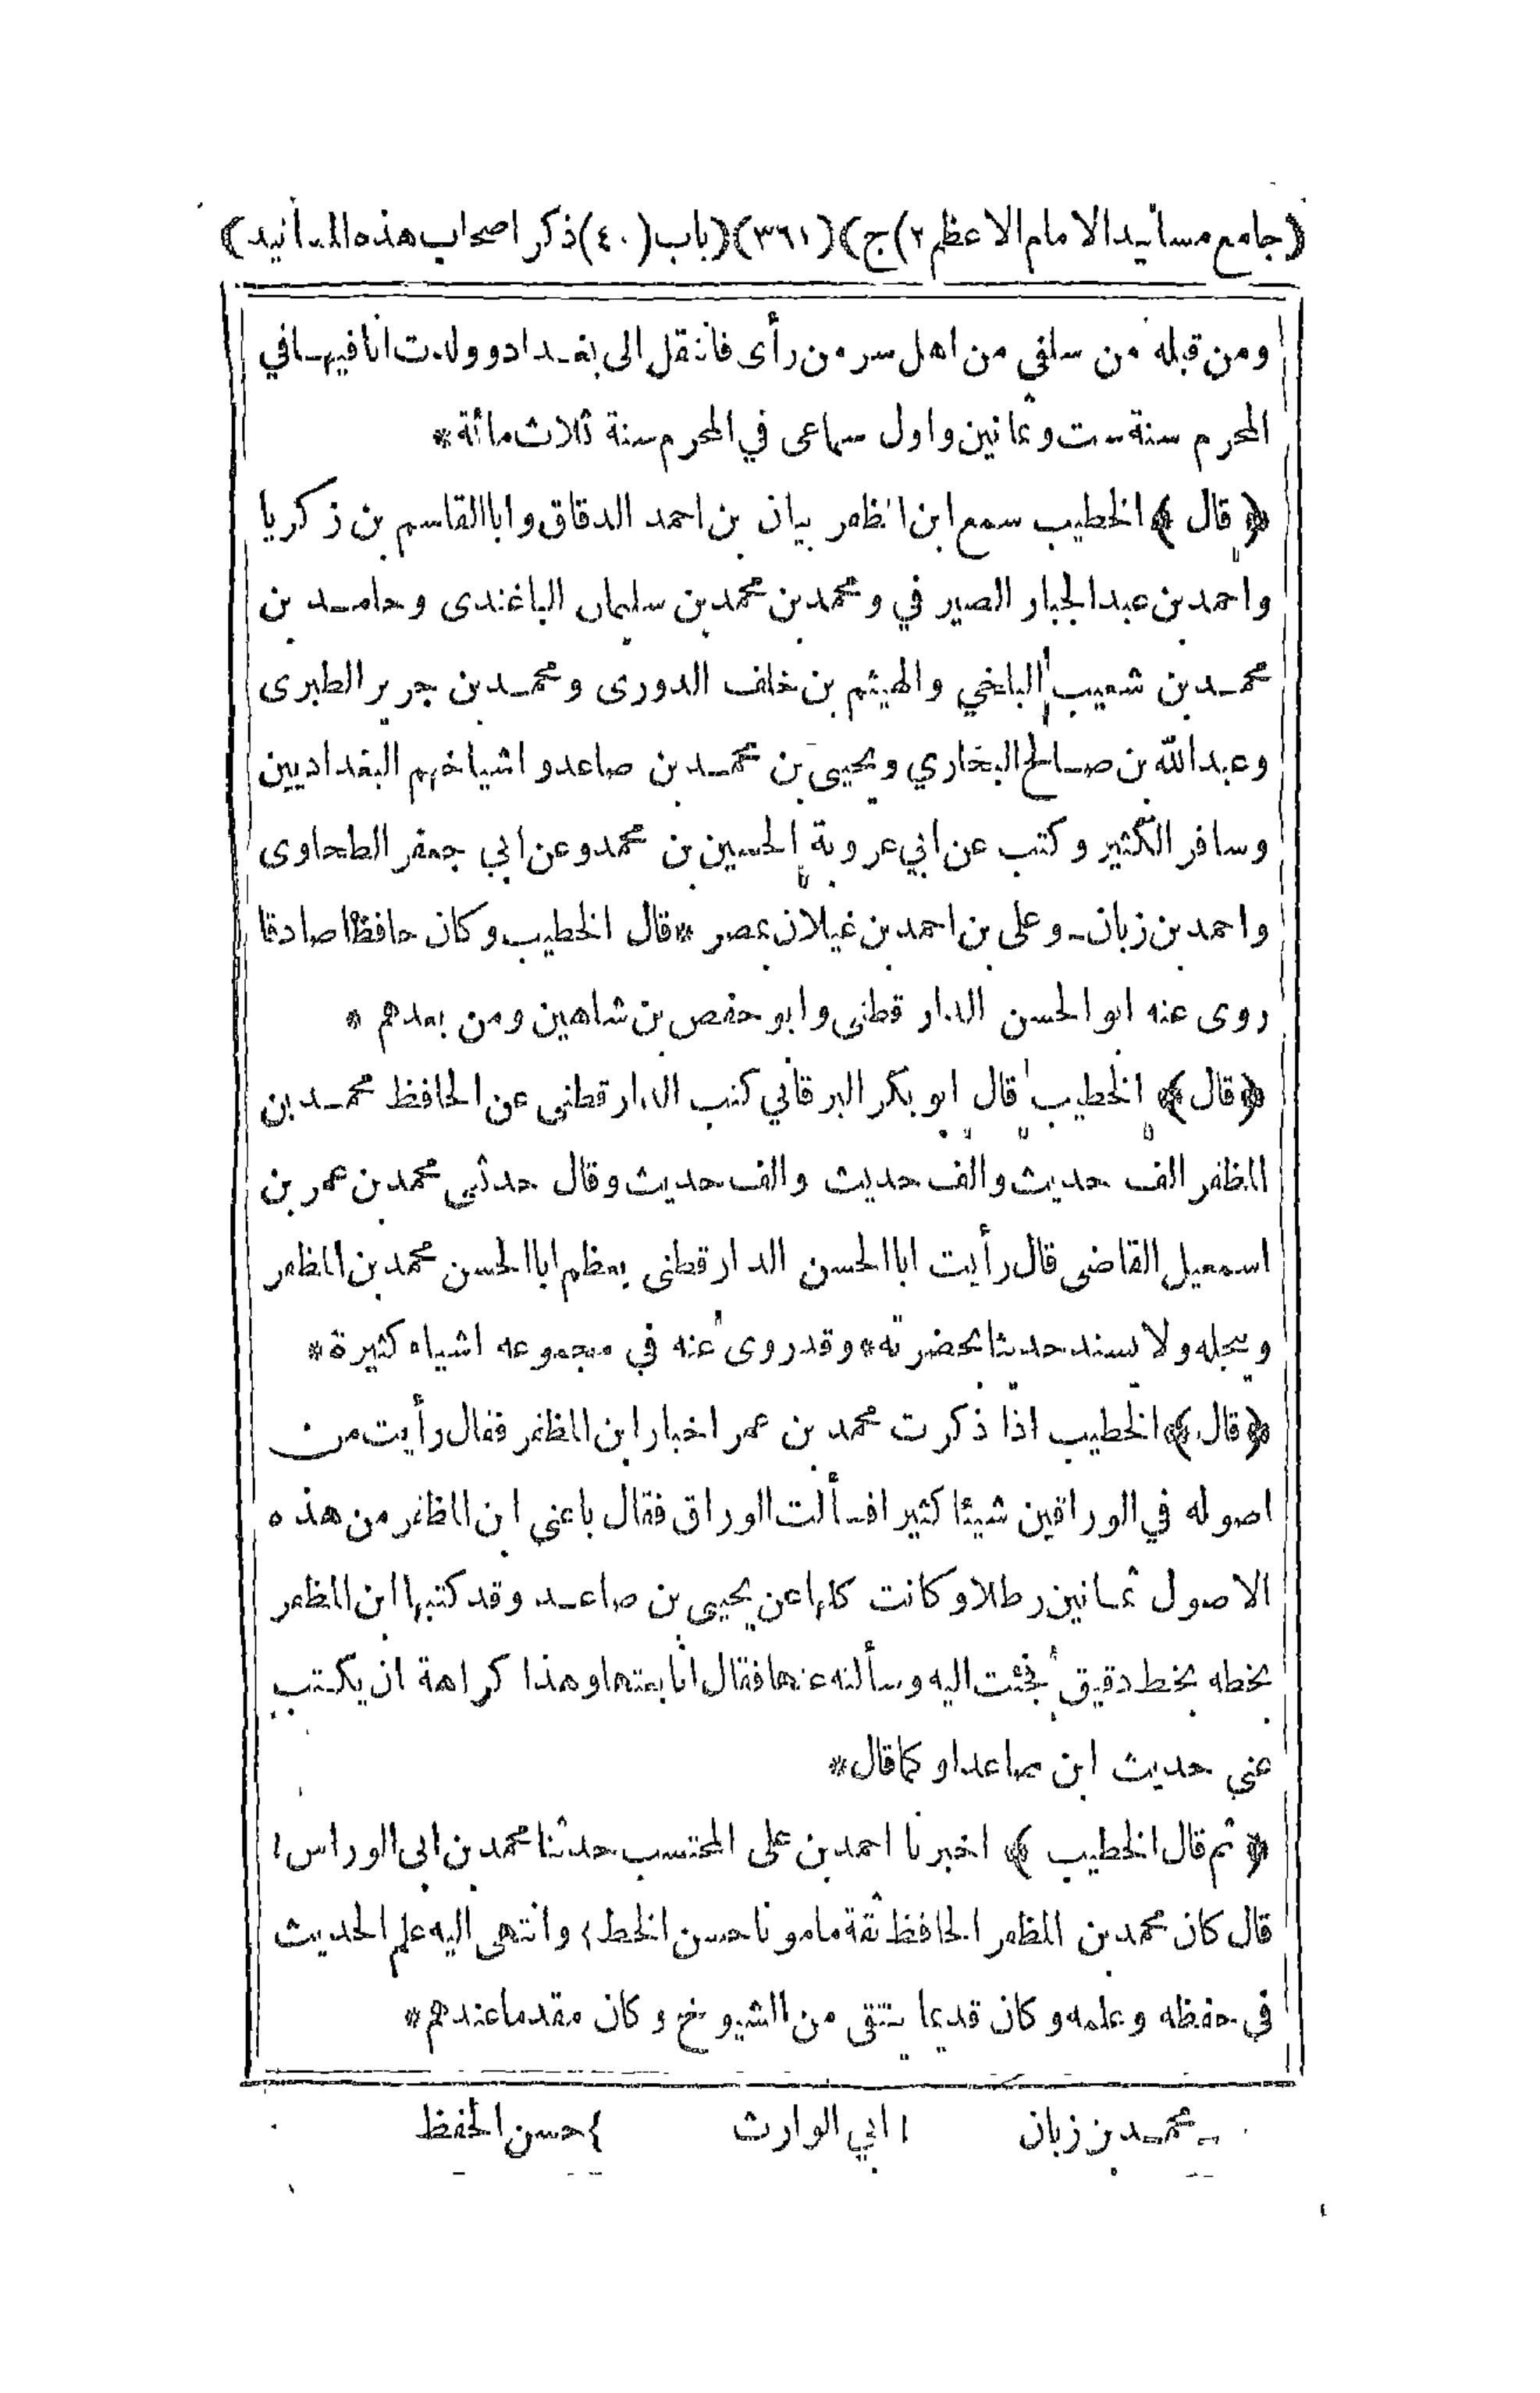 (جامع مسانيد الامام الاعظم ٢) ج) (٣٦١) (باب (٤٠) ذكر اصحاب هذه المسانيد)
ومن قبله من سلفي من اهل سر من رأى فانتقل الى بغداد وولدت انا فيها في
المحرم سنة ست وثمانين واول سماعى في المحرم سنة ثلاث مائة*
﴿قال﴾ الخطيب سمع ابن المظفر بيان بن احمد الدقاق وابا القاسم بن زكريا
واحمد بن عبدالجبار الصيرفي ومحمد بن محمد بن سليمان الباغندى وحامد بن
محمد بن شعيب البلخي والهيثم بن خلف الدورى ومحمد بن جرير الطبرى
وعبدالله بن صالح البخاري ويحيى بن محمد بن صاعد واشياخهم البغداديين
وسافر الكثير وكتب عن ابي عروبة الحسين بن محمد وعن ابي جعفر الطحاوى
واحمد بن زبان ـ وعلى بن احمد بن غيلان بمصر *قال الخطيب وكان حافظا صادقا
روى عنه ابو الحسن الدار قطنى وابو حفص بن شاهين ومن بعدهم *
﴿قال﴾ الخطيب قال ابو بكر البرقاني كتب الدار قطنى عن الحافظ محمد بن
المظفر الف حديث والف حديث والف حديث وقال حدثني محمد بن عمر بن
اسمعيل القاضى قال رأيت ابا الحسن الدار قطنى يعظم ابا الحسن محمد بن المظفر
ويجله ولا يسند حديثا بحضرته* وقد روى عنه في مجموعه اشياء كثيرة*
﴿قال﴾ الخطيب اذا ذكرت محمد بن عمر اخبار ابن المظفر فقال رأيت من
اصوله في الوراقين شيئا كثيرا فسألت الوراق فقال باعنى ابن المظفر من هذه
الاصول ثمانين رطلا وكانت كلها عن يحيى بن صاعد وقد كتبها ابن المظفر
بخطه بخط دقيق فجئت اليه وسألته عنها فقال انا بعتها وهذا كراهة ان يكتب
عني حديث ابن صاعد او كما قال*
﴿ثم قال الخطيب﴾ اخبرنا احمد بن على المحتسب حدثنا محمد بن ابى الوراس ١
قال كان محمد بن المظفر الحافظ ثقة مامونا حسن الخط } وانتهى اليه علم الحديث
فى حفظه وعلمه وكان قديما ينتقى من الشيوخ وكان مقدما عندهم*
ـ محمد بن زبان ١ ابي الوارث } حسن الحفظ